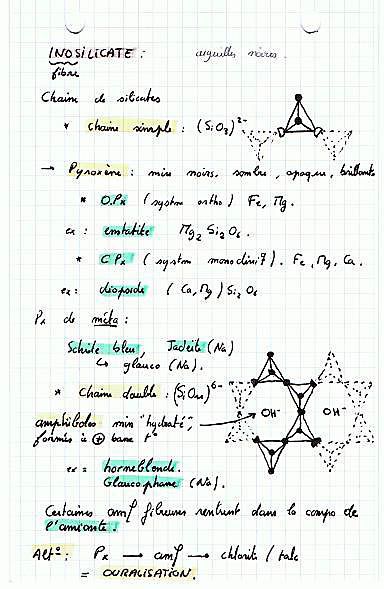 INOSILICATE : aiguilles noires.
fibre
Chaine de silicates
* chaine simple : (SiO3)2-
→ Pyroxène : mins noirs, sombre, opaques, brillants
* OPx (systm ortho) Fe, Mg.
ex : enstatite Mg2 Si2 O6.
* CPx (systm monoclini7). Fe, Mg, Ca.
ex : diopside (Ca, Mg) Si2 O6
Px de méta :
Schiste bleu, Jadeite (Na)
↳ glauco (Na).
* Chaine double : (Si4O11)6-
amphiboles min "hydraté", OH- OH-
formés à ⊕ basse t°
ex : horneblende.
Glaucophane (Na).
Certaines amϕ fibreuses rentrent dans la compo de
l'amiante.
Altº : Px → amϕ → chlorite / talc
= OURALISATION.